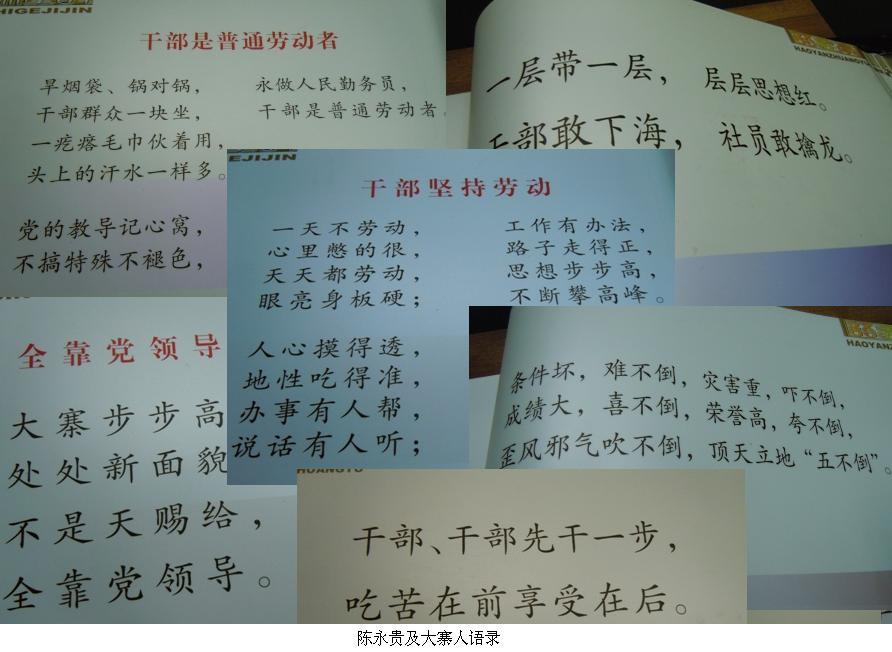 HIGEJIJIN
干部是普通劳动者
旱烟袋、锅对锅， 永做人民勤务员，
干部群众一块坐， 干部是普通劳动者。
一疙瘩毛巾伙着用，
头上的汗水一样多。
党的教导记心窝，
不搞特殊不褪色，
HAOYANZHUANGYU
一层带一层， 层层思想红。
干部敢下海， 社员敢擒龙。
EJIJIN
干部坚持劳动
一天不劳动， 工作有办法，
心里憋的很， 路子走得正，
天天都劳动， 思想步步高，
眼亮身板硬； 不断攀高峰。
人心摸得透，
地性吃得准，
办事有人帮，
说话有人听；
全靠党领导
大寨步步高
处处新面貌
不是天赐给，
全靠党领导。
HAOYANZ
条件坏，难不倒，灾害重，吓不倒，
成绩大，喜不倒，荣誉高，夸不倒，
歪风邪气吹不倒，顶天立地“五不倒”。
HUANGYU
干部、干部先干一步，
吃苦在前享受在后。
陈永贵及大寨人语录